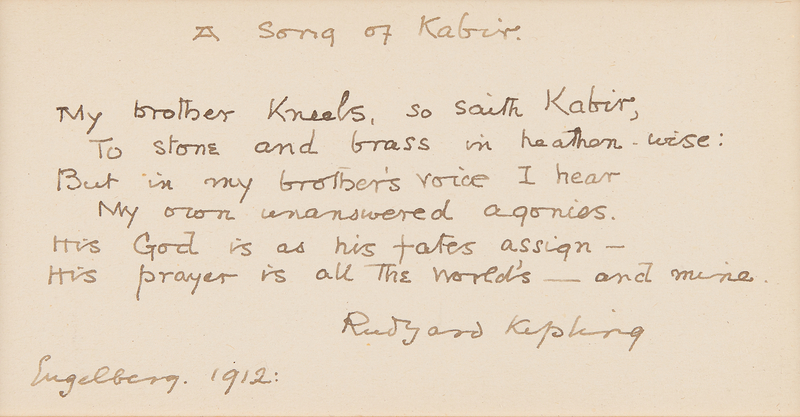 A Song of Kabir.
My brother Kneels, so saith Kabir,
To stone and brass in heathen-wise:
But in my brother's voice I hear
My own unanswered agonies.
His God is as his fates assign —
His prayer is all the World's — and mine.
Rudyard Kipling
Engelberg. 1912: